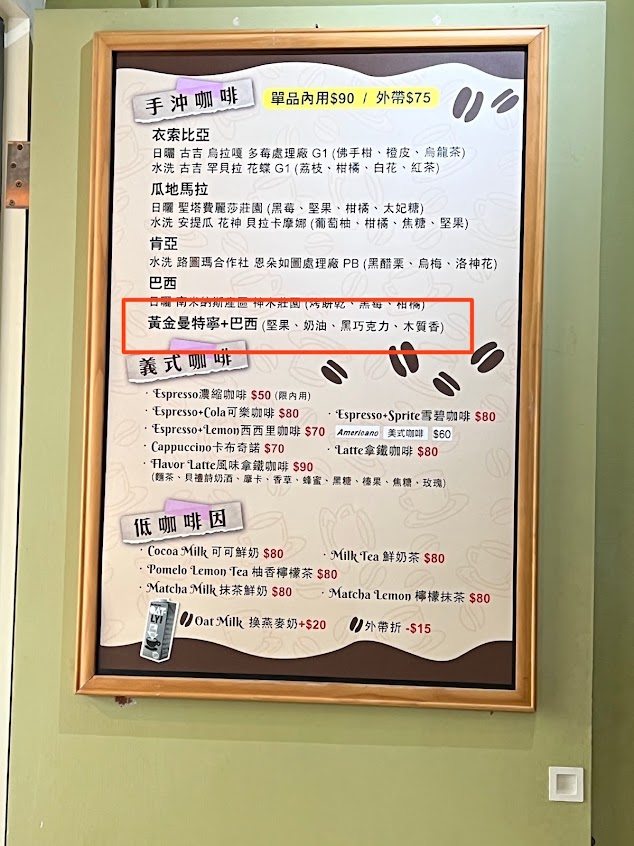 手沖咖啡 單品內用$90 / 外帶$75
衣索比亞
日曬 古吉 烏拉嘎 多莓處理廠 G1 (佛手柑、橙皮、烏龍茶)
水洗 古吉 罕貝拉 花蝶 G1 (荔枝、柑橘、白花、紅茶)
瓜地馬拉
日曬 聖塔費麗莎莊園 (黑莓、堅果、柑橘、太妃糖)
水洗 安提瓜 花神 貝拉卡摩娜 (葡萄柚、柑橘、焦糖、堅果)
肯亞
水洗 路圖瑪合作社 恩朵如圖處理廠 PB (黑醋栗、烏梅、洛神花)
巴西
日曬 南米納斯產區 神木莊園 (烤餅乾、黑莓、柑橘)
黃金曼特寧+巴西 (堅果、奶油、黑巧克力、木質香)
義式咖啡
· Espresso濃縮咖啡 $50 (限內用)
· Espresso+Cola可樂咖啡 $80
· Espresso+Sprite雪碧咖啡 $80
· Espresso+Lemon西西里咖啡 $70
Americano 美式咖啡 $60
· Cappuccino卡布奇諾 $70
· Latte拿鐵咖啡 $80
· Flavor Latte風味拿鐵咖啡 $90
(麵茶、貝禮詩奶酒、摩卡、香草、蜂蜜、黑糖、榛果、焦糖、玫瑰)
低咖啡因
· Cocoa Milk 可可鮮奶 $80
· Milk Tea 鮮奶茶 $80
· Pomelo Lemon Tea 柚香檸檬茶 $80
· Matcha Milk 抹茶鮮奶 $80
· Matcha Lemon 檸檬抹茶 $80
OATLY!
Oat Milk 換燕麥奶+$20
外帶折 -$15